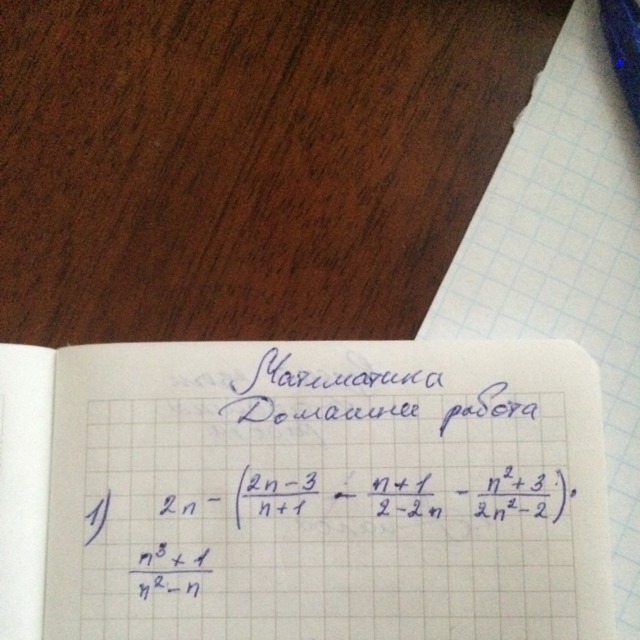 Математика
Домашняя работа
1) 2n - ( (2n-3)/(n+1) - (n+1)/(2-2n) - (n²+3)/(2n²-2) ) ·
(n³+1)/(n²-n)